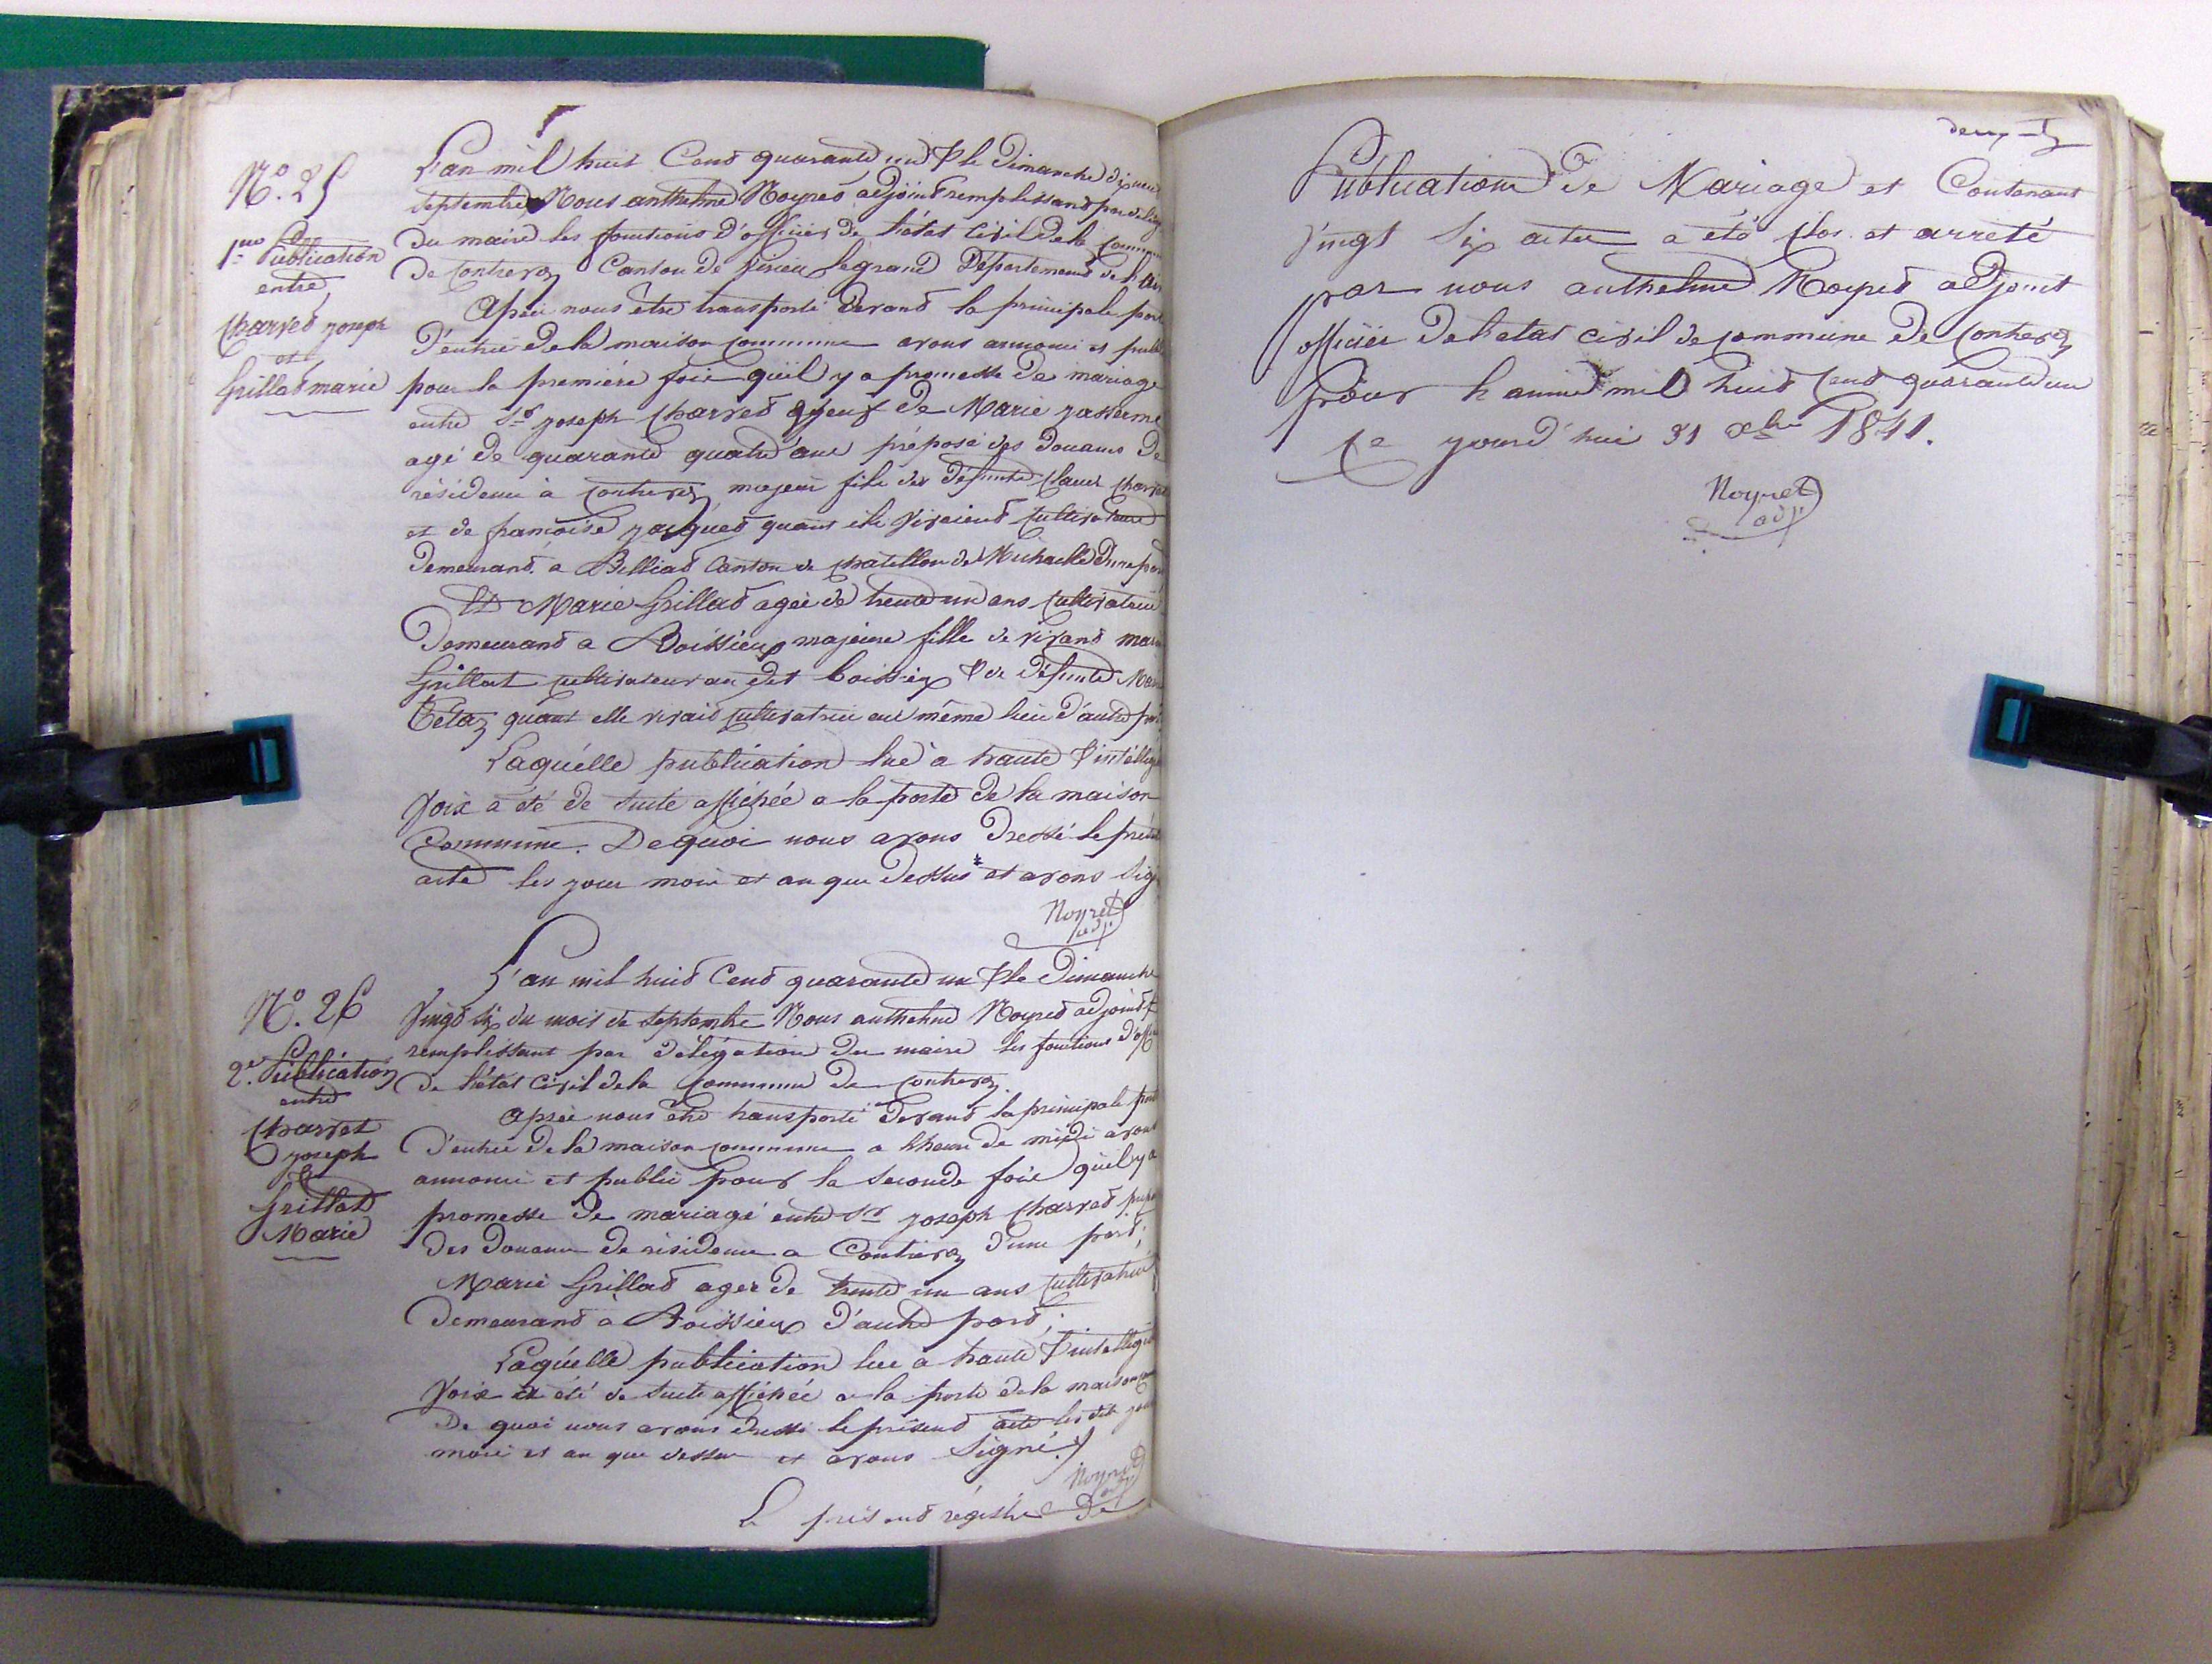 N°. 25
1ère Publication
entre
Charvet joseph
et
Grillat marie
L'an mil huit Cent quarante un & le Dimanche dix neuf
septembre Nous anthelme Noyret adjoint remplissant par
du maire les fonctions d'officier de l'état civil de la
de Contrevoz Canton de Virieu legrand Département de l'ain
Après nous être transporté devant la principale porte
d'entrée de la maison commune avons annoncé et publié
pour la première fois qu'il y a promesse de mariage
entre Sr joseph Charvet veuf de Marie
agé de quarante quatre ans préposé des Douanes de
résidence à Contrevoz majeur fils des défunts Claude Charvet
et de françoise jacquet quant ils vivaient cultivateurs
Demeurant a Billiat Canton de chatillon de Michaille d'une part
Et Marie Grillat agée de trente un ans cultivatrice
Demeurant a Boissieux majeure fille de vivant
Grillat cultivateur au dit boissieux & de défunte
Bétaz quant elle vivait cultivatrice au même lieu d'autre part
Laquelle publication lue à haute & intelligible
voix a été de suite affichée a la porte de la maison
Commune. De quoi nous avons dressé le présent
acte les jour mois et an que dessus et avons signé
Noyret
adj.
N°. 26
2e. Publication
entre
Charvet
joseph
&
Grillat
Marie
L'an mil huit Cent quarante un & le Dimanche
vingt six du mois de septembre Nous anthelme Noyret adjoint
remplissant par délégation du maire les fonctions
de l'état civil de la Commune de Contrevoz.
Après nous être transporté devant la principale porte
d'entrée de la maison commune a l'heure de midi avons
annoncé et publié pour la seconde fois qu'il y a
promesse de mariage entre Sr joseph Charvet
des Douanes de résidence a Contrevoz d'une part;
Marie Grillat agée de trente un ans cultivatrice
Demeurant à Boissieux d'autre part;
Laquelle publication lue a haute & intelligible
voix a été de suite affichée a la porte de la maison
De quoi nous avons dressé le présent acte les dit jour
mois et an que dessus et avons signé.
Noyret
adj
Le présent régistre De
Publication De Mariage et Contenant
vingt six actes a été clos et arreté
par nous anthelme Noyret adjoint
officier de l'état civil de commune de Contrevoz
pour l'année mil huit Cent quarante un
Ce jourd'hui 31 xbre 1841.
Noyret
adj.